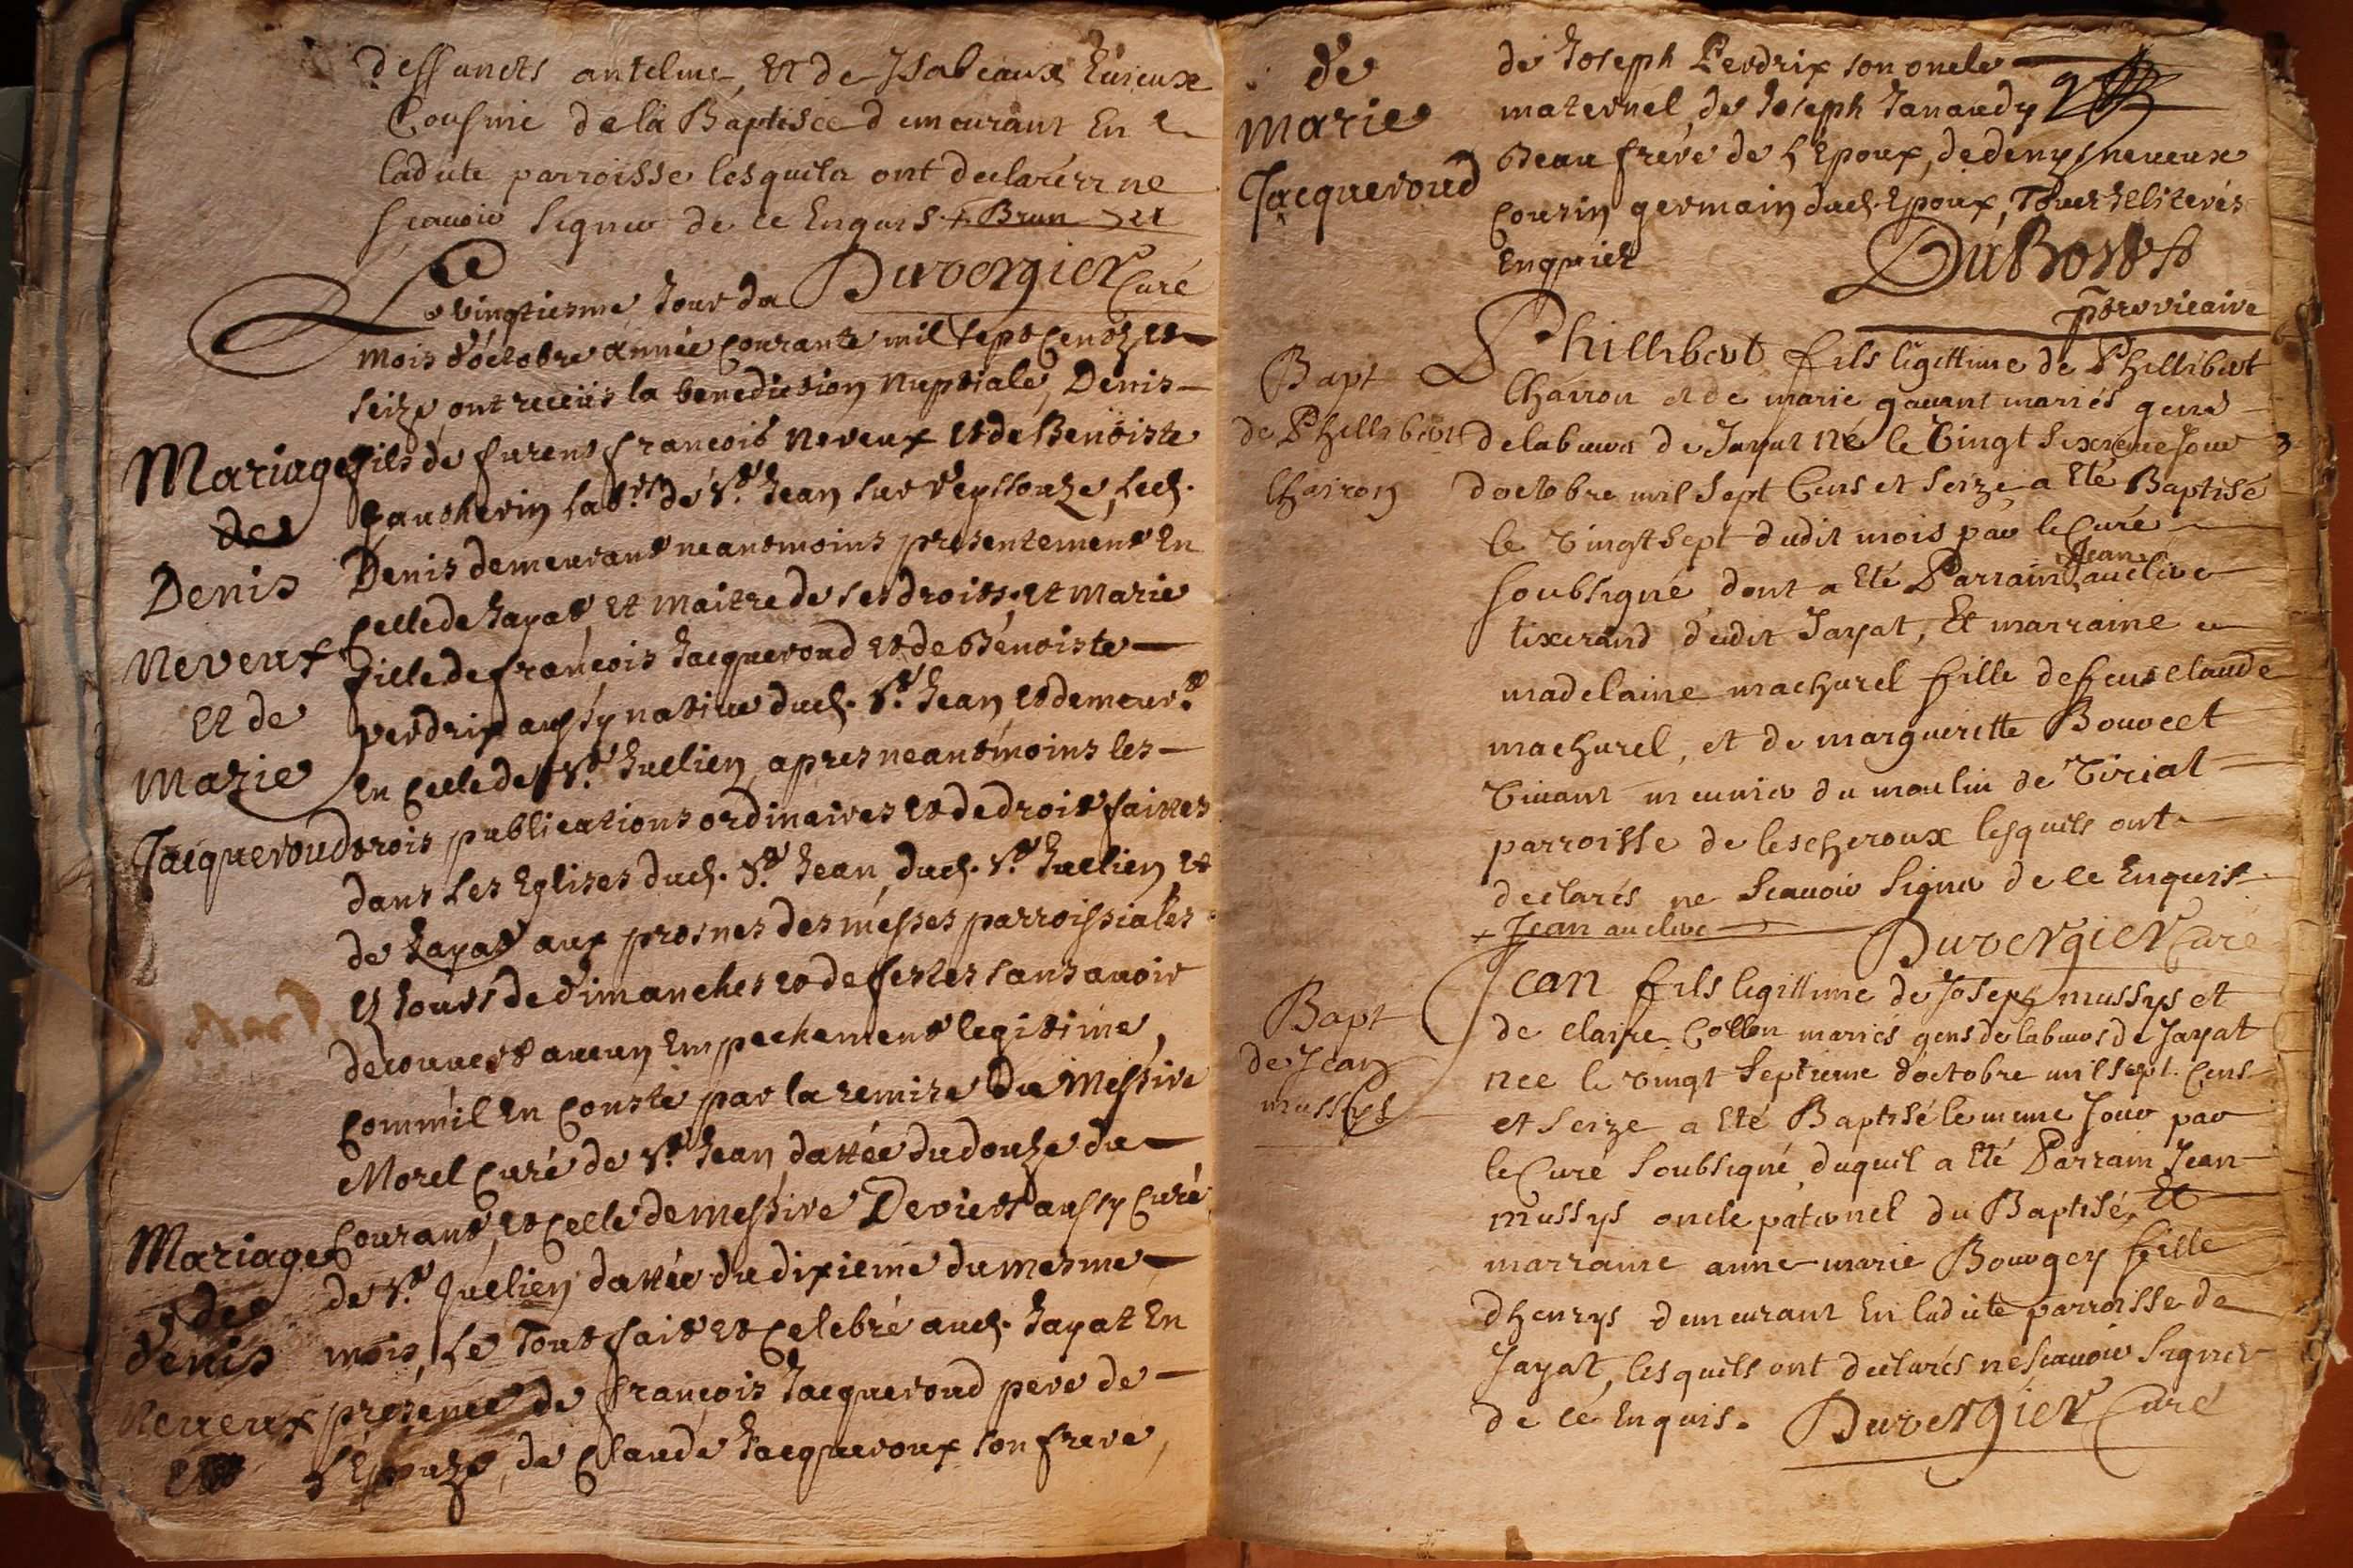 deffuncts antelme, Et de Isabeaux Euieux
Cousine de la Baptisée demeurant En
ladite parroisse lesquels ont declarés ne
sçauoir signer de ce Enquis + Brun
Duvergier Curé
Le vingtiesme Jour du
mois d'octobre année courante mil sept Cent Et
seize, ont receüs la benediction nuptiale, Denis
Mariage
de
Denis
Neveux
Et de
Marie
Jacqueroud
fils de furent françois Neveux Et de Benoiste
Gautherin lab.rs de St. Jean sur Reyssouze, led.
Denis demeurant neantmoins presentement En
celle de Jayat, Et maitre de ses droits, Et Marie
fille de françois Jacqueroud Et de Bénoiste
perdrix aussy natiue dud. St. Jean, Et demeurt
En celle de St. Jullien, apres neantmoins les
trois publications ordinaires Et de droit faittes
dans les Eglises dud. St. Jean, dud. St. Jullien Et
de Jayat aux prosnes des messes parroissiales
Es Jours de dimanches Et de festes sans auoir
decouuert aucun Empechement legitime,
comm'il En conste par la remise du Messire
Morel Curé de St. Jean, dattée du douze du
Mariage
de
denis
Neueux
Et
courant, Et celle de messire Deviert aussy curé
de St. Jullien dattée du dixieme du mesme
mois, Le Tout fait Et celebré aud. Jayat En
presence de françois Jacqueroud pere de
L'Epouze, de Claude Jacqueroux son frere,
de
Marie
Jacqueroud
de Joseph Perdrix son oncle
maternel, de Joseph Janaudy
Beau frere de L'Epoux, de denys neueux
cousin germain dud. Epoux, Tous Illiterés
Enquiez
DuBost
ptre vicaire
Bapt
de Phillibert
Chairon
Phillibert fils ligittime de Phillibert
Chairon et de marie gauant mariés gens
de labeurs de Jayat Né le Vingt sixieme Jour
d'octobre mil sept Cens et seize a Eté Baptisé
le Vingt sept dudit mois par le Curé
soubsigné, dont a Eté Parrain Jean auclere
tixerand dudit Jayat, Et marraine
madelaine machurel fille de feus claude
machurel, et de margueritte Bouveet
Viuant meunier du moulin de Viriat
parroisse de lescheroux lesquels ont
declarés ne Scauoir Signer de ce Enquis
+ Jean auclere
Duvergier Curé
Bapt
de Jean
mussys
Jean fils ligittime de Joseph mussys et
de claire Collon mariés gens de labeurs de Jayat
née le vingt Septieme d'octobre mil sept Cens
et seize a Eté Baptisé le meme Jour par
le Curé Soubsigné, duquil a Eté Parrain Jean
mussys oncle paternel du Baptisé, Et
marraine anne-marie Bouvgey fille
dhenrys demeurant En ladite parroisse de
Jayat, lesquels ont declarés ne Scauoir Signer
de ce Enquis. Duvergier Curé